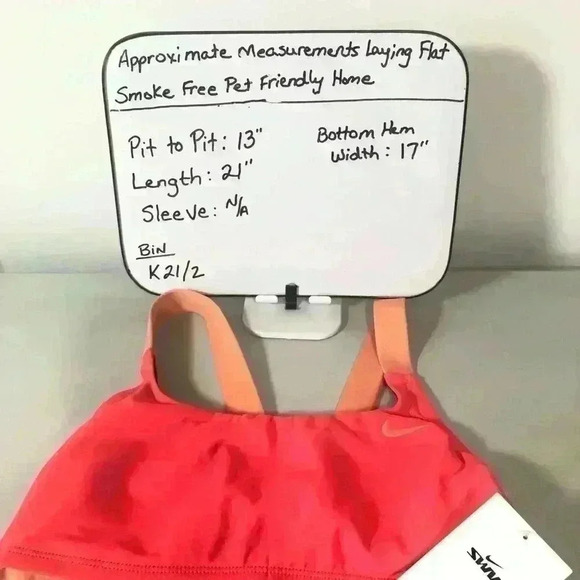 Approximate Measurements Laying Flat
Smoke Free Pet Friendly Home
Pit to Pit: 13"
Length: 21"
Sleeve: N/A
Bottom Hem
Width: 17"
BIN
K21/2